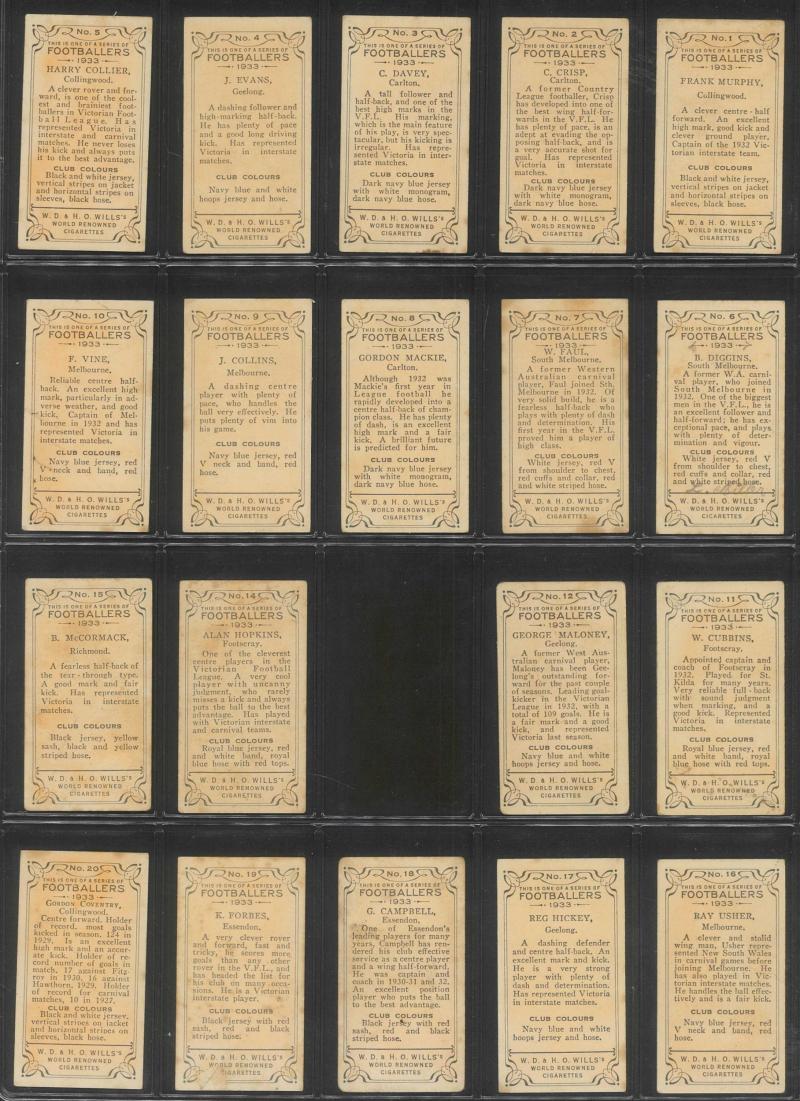 No. 5
THIS IS ONE OF A SERIES OF
FOOTBALLERS
1933
HARRY COLLIER,
Collingwood.
A clever rover and for-
ward, is one of the cool-
est and brainiest foot-
ballers in Victorian Foot-
ball League. Has
represented Victoria in
interstate and carnival
matches. He never loses
his kick and always puts
it to the best advantage.
CLUB COLOURS
Black and white jersey,
vertical stripes on jacket
and horizontal stripes on
sleeves, black hose.
W. D. & H. O. WILLS's
WORLD RENOWNED
CIGARETTES
No. 4
THIS IS ONE OF A SERIES OF
FOOTBALLERS
1933
J. EVANS,
Geelong.
A dashing follower and
high-marking half-back.
He has plenty of pace
and a good long driving
kick. Has represented
Victoria in interstate
matches.
CLUB COLOURS
Navy blue and white
hoops jersey and hose.
W. D. & H. O. WILLS's
WORLD RENOWNED
CIGARETTES
No. 3
THIS IS ONE OF A SERIES OF
FOOTBALLERS
1933
C. DAVEY,
Carlton.
A tall follower and
half-back, and one of the
best high marks in the
V.F.L. His marking,
which is the main feature
of his play, is very spec-
tacular, but his kicking is
irregular. Has repre-
sented Victoria in inter-
state matches.
CLUB COLOURS
Dark navy blue jersey
with white monogram,
dark navy blue hose.
W. D. & H. O. WILLS's
WORLD RENOWNED
CIGARETTES
No. 2
THIS IS ONE OF A SERIES OF
FOOTBALLERS
1933
C. CRISP,
Carlton.
A former Country
League footballer, Crisp
has developed into one of
the best wing half-for-
wards in the V.F.L. He
has plenty of pace, is an
adept at evading the op-
posing half-back, and is
a very accurate shot for
goal. Has represented
Victoria in interstate
matches.
CLUB COLOURS
Dark navy blue jersey
with white monogram,
dark navy blue hose.
W. D. & H. O. WILLS's
WORLD RENOWNED
CIGARETTES
No. 1
THIS IS ONE OF A SERIES OF
FOOTBALLERS
1933
FRANK MURPHY,
Collingwood.
A clever centre-half
forward. An excellent
high mark, good kick and
clever ground player.
Captain of the 1932 Vic-
torian interstate team.
CLUB COLOURS
Black and white jersey,
vertical stripes on jacket
and horizontal stripes on
sleeves, black hose.
W. D. & H. O. WILLS's
WORLD RENOWNED
CIGARETTES
No. 10
THIS IS ONE OF A SERIES OF
FOOTBALLERS
1933
F. VINE,
Melbourne.
Reliable centre half-
back. An excellent high
mark, particularly in ad-
verse weather, and good
kick. Captain of Mel-
bourne in 1932 and has
represented Victoria in
interstate matches.
CLUB COLOURS
Navy blue jersey, red
V neck and band, red
hose.
W. D. & H. O. WILLS's
WORLD RENOWNED
CIGARETTES
No. 9
THIS IS ONE OF A SERIES OF
FOOTBALLERS
1933
J. COLLINS,
Melbourne.
A dashing centre
player with plenty of
pace, who handles the
ball very effectively. He
puts plenty of vim into
his game.
CLUB COLOURS
Navy blue jersey, red
V neck and band, red
hose.
W. D. & H. O. WILLS's
WORLD RENOWNED
CIGARETTES
No. 8
THIS IS ONE OF A SERIES OF
FOOTBALLERS
1933
GORDON MACKIE,
Carlton.
Although 1932 was
Mackie's first year in
League football he
rapidly developed into a
centre half-back of cham-
pion class. He has plenty
of dash, is an excellent
high mark and a fair
kick. A brilliant future
is predicted for him.
CLUB COLOURS
Dark navy blue jersey
with white monogram,
dark navy blue hose.
W. D. & H. O. WILLS's
WORLD RENOWNED
CIGARETTES
No. 7
THIS IS ONE OF A SERIES OF
FOOTBALLERS
1933
W. FAUL,
South Melbourne.
A former Western
Australian carnival
player, Faul joined Sth.
Melbourne in 1932. Of
very solid build, he is a
fearless half-back who
plays with plenty of dash
and determination. His
first year in the V.F.L.
proved him a player of
high class.
CLUB COLOURS
White jersey, red V
from shoulder to chest,
red cuffs and collar, red
and white striped hose.
W. D. & H. O. WILLS's
WORLD RENOWNED
CIGARETTES
No. 6
THIS IS ONE OF A SERIES OF
FOOTBALLERS
1933
B. DIGGINS,
South Melbourne.
A former W.A. carni-
val player, who joined
South Melbourne in
1932. One of the biggest
men in the V.F.L., he is
an excellent follower and
half-forward; he has ex-
ceptional pace, and plays
with plenty of deter-
mination and vigour.
CLUB COLOURS
White jersey, red V
from shoulder to chest,
red cuffs and collar, red
and white striped hose.
W. D. & H. O. WILLS's
WORLD RENOWNED
CIGARETTES
No. 15
THIS IS ONE OF A SERIES OF
FOOTBALLERS
1933
B. McCORMACK,
Richmond.
A fearless half-back of
the tear-through type.
A good mark and fair
kick. Has represented
Victoria in interstate
matches.
CLUB COLOURS
Black jersey, yellow
sash, black and yellow
striped hose.
W. D. & H. O. WILLS's
WORLD RENOWNED
CIGARETTES
No. 14
THIS IS ONE OF A SERIES OF
FOOTBALLERS
1933
ALAN HOPKINS,
Footscray.
One of the cleverest
centre players in the
Victorian Football
League. A very cool
player with uncanny
judgment, who rarely
misses a kick and always
puts the ball to the best
advantage. Has played
with Victorian interstate
and carnival teams.
CLUB COLOURS
Royal blue jersey, red
and white band, royal
blue hose with red tops.
W. D. & H. O. WILLS's
WORLD RENOWNED
CIGARETTES
No. 12
THIS IS ONE OF A SERIES OF
FOOTBALLERS
1933
GEORGE MALONEY,
Geelong.
A former West Aus-
tralian carnival player,
Maloney has been Gee-
long's outstanding for-
ward for the past couple
of seasons. Leading goal-
kicker in the Victorian
League in 1932, with a
total of 109 goals. He is
a fair mark and good
kick, and represented
Victoria last season.
CLUB COLOURS
Navy blue and white
hoops jersey and hose.
W. D. & H. O. WILLS's
WORLD RENOWNED
CIGARETTES
No. 11
THIS IS ONE OF A SERIES OF
FOOTBALLERS
1933
W. CUBBINS,
Footscray.
Appointed captain and
coach of Footscray in
1932. Played for St.
Kilda for many years.
Very reliable full-back
with sound judgment
when marking, and a
good kick. Represented
Victoria in interstate
matches.
CLUB COLOURS
Royal blue jersey, red
and white band, royal
blue hose with red tops.
W. D. & H. O. WILLS's
WORLD RENOWNED
CIGARETTES
No. 20
THIS IS ONE OF A SERIES OF
FOOTBALLERS
1933
GORDON COVENTRY,
Collingwood.
Centre forward. Holder
of record, most goals
kicked in season, 124 in
1929, Is an excellent
high mark and an accur-
ate kick. Holder of re-
cord number of goals in
match, 17 against Fitz-
roy in 1930, 16 against
Hawthorn, 1929. Holder
of record for carnival
matches, 10 in 1927.
CLUB COLOURS
Black and white jersey,
vertical stripes on jacket
and horizontal stripes on
sleeves, black hose.
W. D. & H. O. WILLS's
WORLD RENOWNED
CIGARETTES
No. 19
THIS IS ONE OF A SERIES OF
FOOTBALLERS
1933
K. FORBES,
Essendon.
A very clever rover
and forward, fast and
tricky, he scores more
goals than any other
rover in the V.F.L., and
has headed the list for
his club on many occa-
sions. He is a Victorian
interstate player.
CLUB COLOURS
Black jersey with red
sash, red and black
striped hose.
W. D. & H. O. WILLS's
WORLD RENOWNED
CIGARETTES
No. 18
THIS IS ONE OF A SERIES OF
FOOTBALLERS
1933
G. CAMPBELL,
Essendon.
One of Essendon's
leading players for many
years, Campbell has ren-
dered his club effective
service as a centre player
and a wing half-forward.
He was captain and
coach in 1930-31 and 32.
An excellent position
player who puts the ball
to the best advantage.
CLUB COLOURS
Black jersey with red
sash, red and black
striped hose.
W. D. & H. O. WILLS's
WORLD RENOWNED
CIGARETTES
No. 17
THIS IS ONE OF A SERIES OF
FOOTBALLERS
1933
REG HICKEY,
Geelong.
A dashing defender
and centre half-back. An
excellent mark and kick.
He is a very strong
player with plenty of
dash and determination.
Has represented Victoria
in interstate matches.
CLUB COLOURS
Navy blue and white
hoops jersey and hose.
W. D. & H. O. WILLS's
WORLD RENOWNED
CIGARETTES
No. 16
THIS IS ONE OF A SERIES OF
FOOTBALLERS
1933
RAY USHER,
Melbourne.
A clever and stolid
wing man, Usher repre-
sented New South Wales
in carnival games before
joining Melbourne. He
has also played in Vic-
torian interstate matches.
He handles the ball effec-
tively and is a fair kick.
CLUB COLOURS
Navy blue jersey, red
V neck and band, red
hose.
W. D. & H. O. WILLS's
WORLD RENOWNED
CIGARETTES